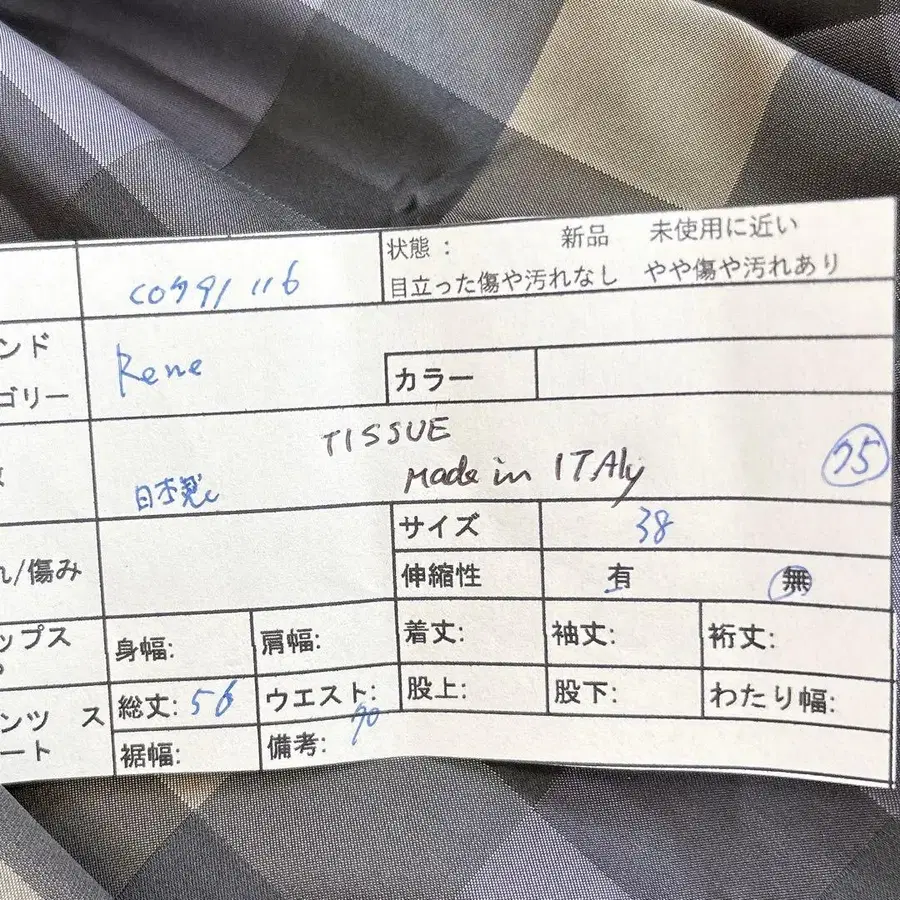 状態： 新品 未使用に近い
目立った傷や汚れなし やや傷や汚れあり
ンド
Rene
ゴリー
カラー
TISSUE
Made in ITAly
日本製
サイズ 38
れ/傷み
伸縮性 有 無
ップス
身幅: 肩幅: 着丈: 袖丈: 裄丈:
ンツ ス
ート
総丈: 56 ウエスト: 70 股上: 股下: わたり幅:
裾幅: 備考: